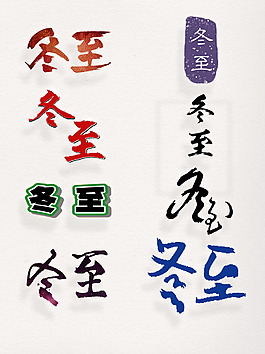 冬至
冬至
冬至
冬至
冬至
冬至
冬至
冬至